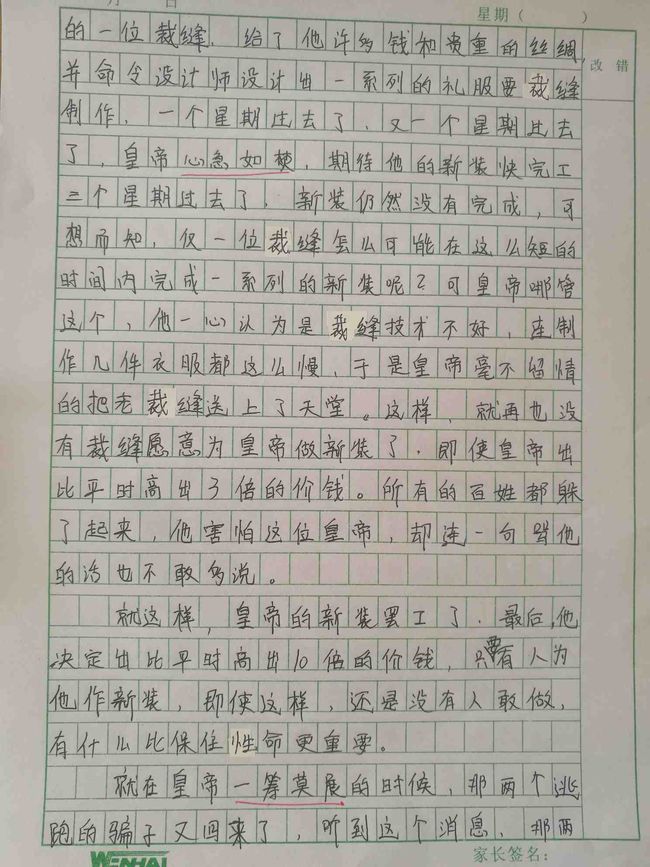 月 日 星期（ ）
改 错
的一位裁缝．给了他许多钱和贵重的丝绸，
并命令设计师设计出一系列的礼服要裁缝
制作．一个星期过去了．又一个星期过去
了，皇帝心急如焚，期待他的新装快完工
三个星期过去了．新装仍然没有完成，可
想而知，仅一位裁缝怎么可能在这么短的
时间内完成一系列的新装呢？可皇帝哪管
这个，他一心认为是裁缝技术不好，连制
作几件衣服都这么慢，于是皇帝毫不留情
的把老裁缝送上了天堂。这样，就再也没
有裁缝愿意为皇帝做新装了．即使皇帝出
比平时高出3倍的价钱。所有的百姓都躲
了起来，他害怕这位皇帝，却连一句骂他
的话也不敢多说。
就这样，皇帝的新装罢工了．最后，他
决定出比平时高出10倍的价钱，只要有人为
他作新装，即使这样，还是没有人敢做，
有什么比保住性命更重要。
就在皇帝一筹莫展的时候，那两个逃
跑的骗子又回来了，听到这个消息，那两
WENHAI 家长签名：